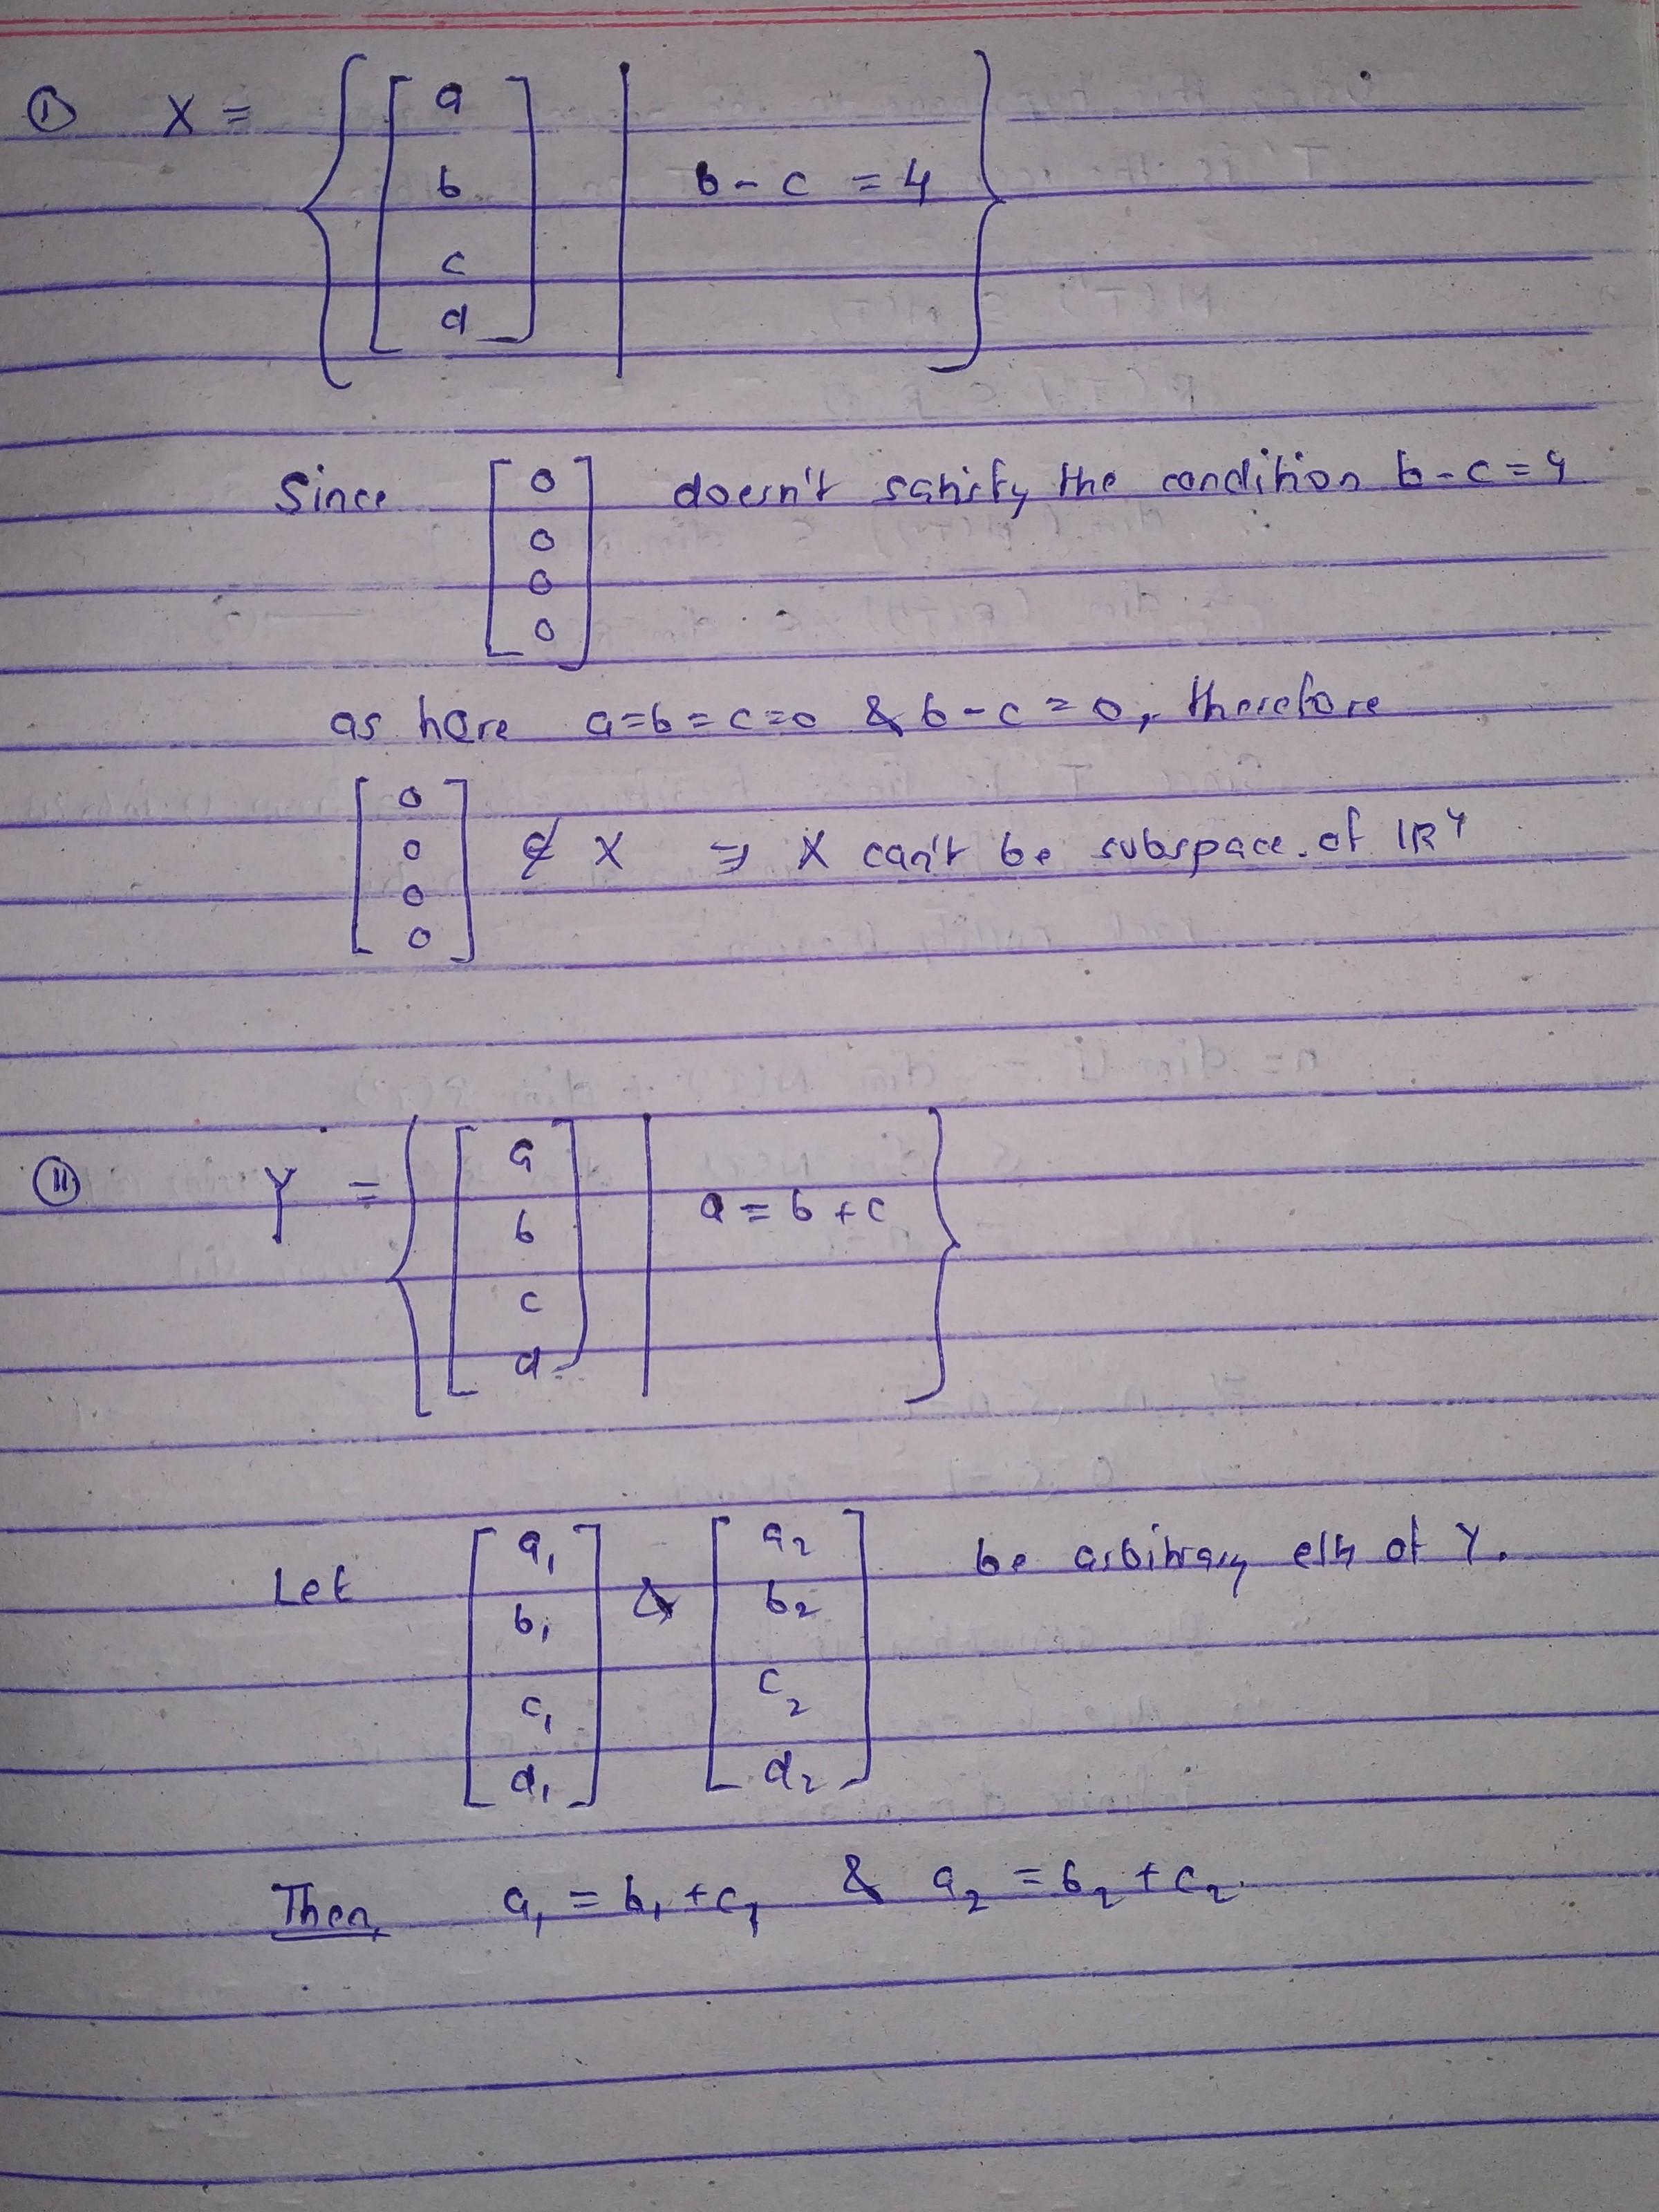 ① X = { [ a b c d ] | b - c = 4 }
Since [ 0 0 0 0 ] doesn't satisfy the condition b - c = 4
as here a = b = c = 0 & b - c = 0, therefore
[ 0 0 0 0 ] ∉ X ⇒ X can't be subspace of ℝ⁴
⑪ Y = { [ a b c d ] | a = b + c }
Let [ a₁ b₁ c₁ d₁ ] & [ a₂ b₂ c₂ d₂ ] be arbitrary elts of Y.
Then, a₁ = b₁ + c₁ & a₂ = b₂ + c₂.